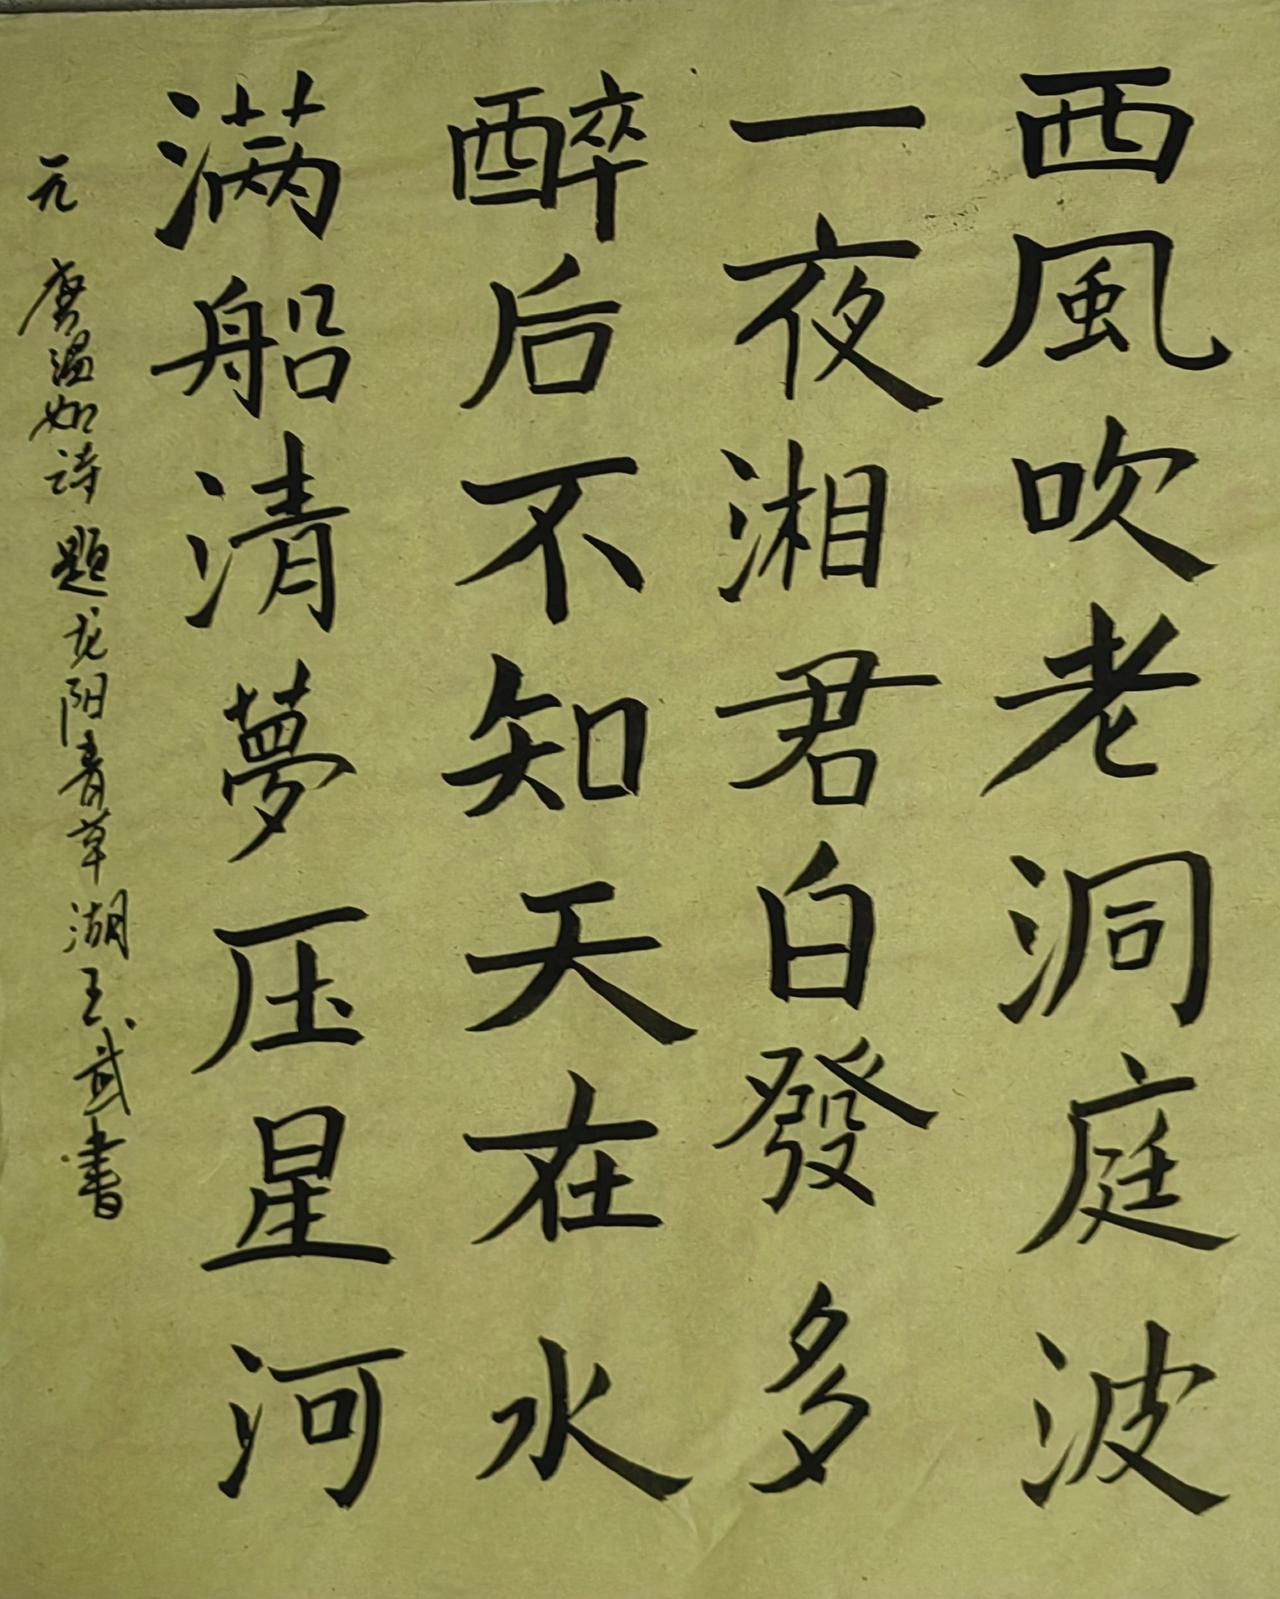 西風吹老洞庭波
一夜湘君白發多
醉后不知天在水
满船清夢压星河
元 唐温如诗 题龙阳青草湖 王武書